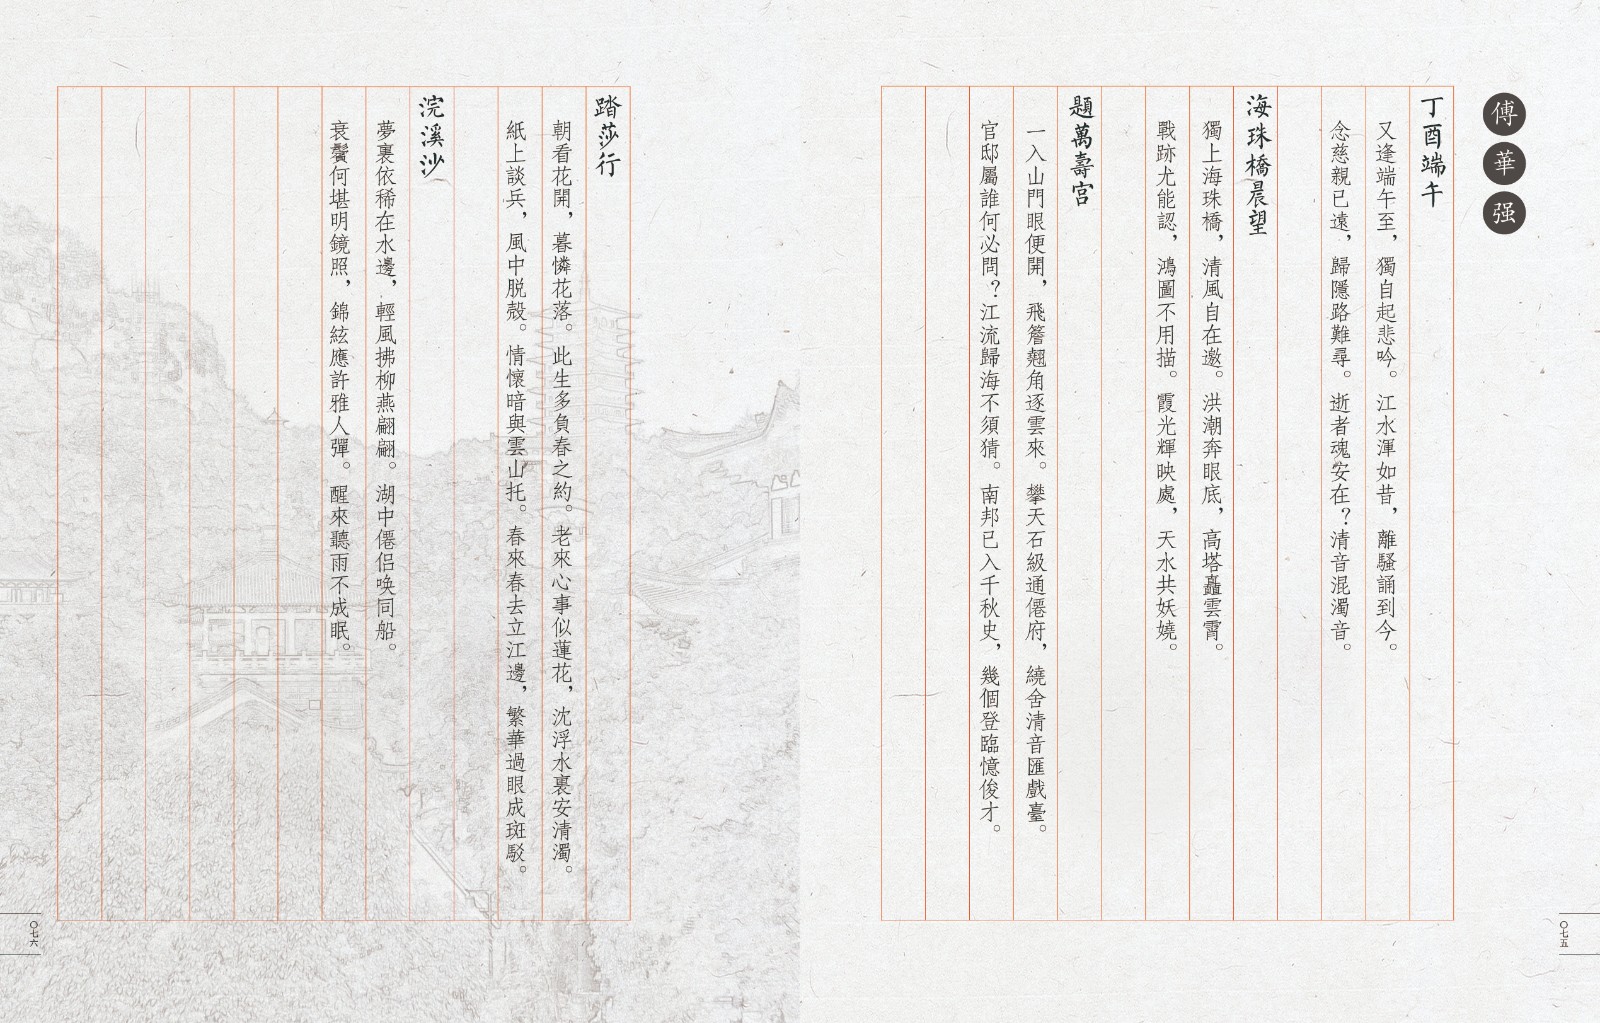 傅華强
丁酉端午
又逢端午至，獨自起悲吟。江水渾如昔，離騷誦到今。
念慈親已遠，歸隱路難尋。逝者魂安在？清音混濁音。
海珠橋晨望
獨上海珠橋，清風自在邀。洪潮奔眼底，高塔矗雲霄。
戰跡尤能認，鴻圖不用描。霞光輝映處，天水共妖嬈。
題萬壽宮
一入山門眼便開，飛簷翹角逐雲來。攀天石級通僊府，繞舍清音匯戲臺。
官邸屬誰何必問？江流歸海不須猜。南邦已入千秋史，幾個登臨憶俊才。
〇七五
踏莎行
朝看花開，暮憐花落。此生多負春之約。老來心事似蓮花，沈浮水裏安清濁。
紙上談兵，風中脱殼。情懷暗與雲山托。春來春去立江邊，繁華過眼成斑駁。
浣溪沙
夢裏依稀在水邊，輕風拂柳燕翩翩。湖中僊侣唤同船。
衰鬢何堪明鏡照，錦絃應許雅人彈。醒來聽雨不成眠。
〇七六